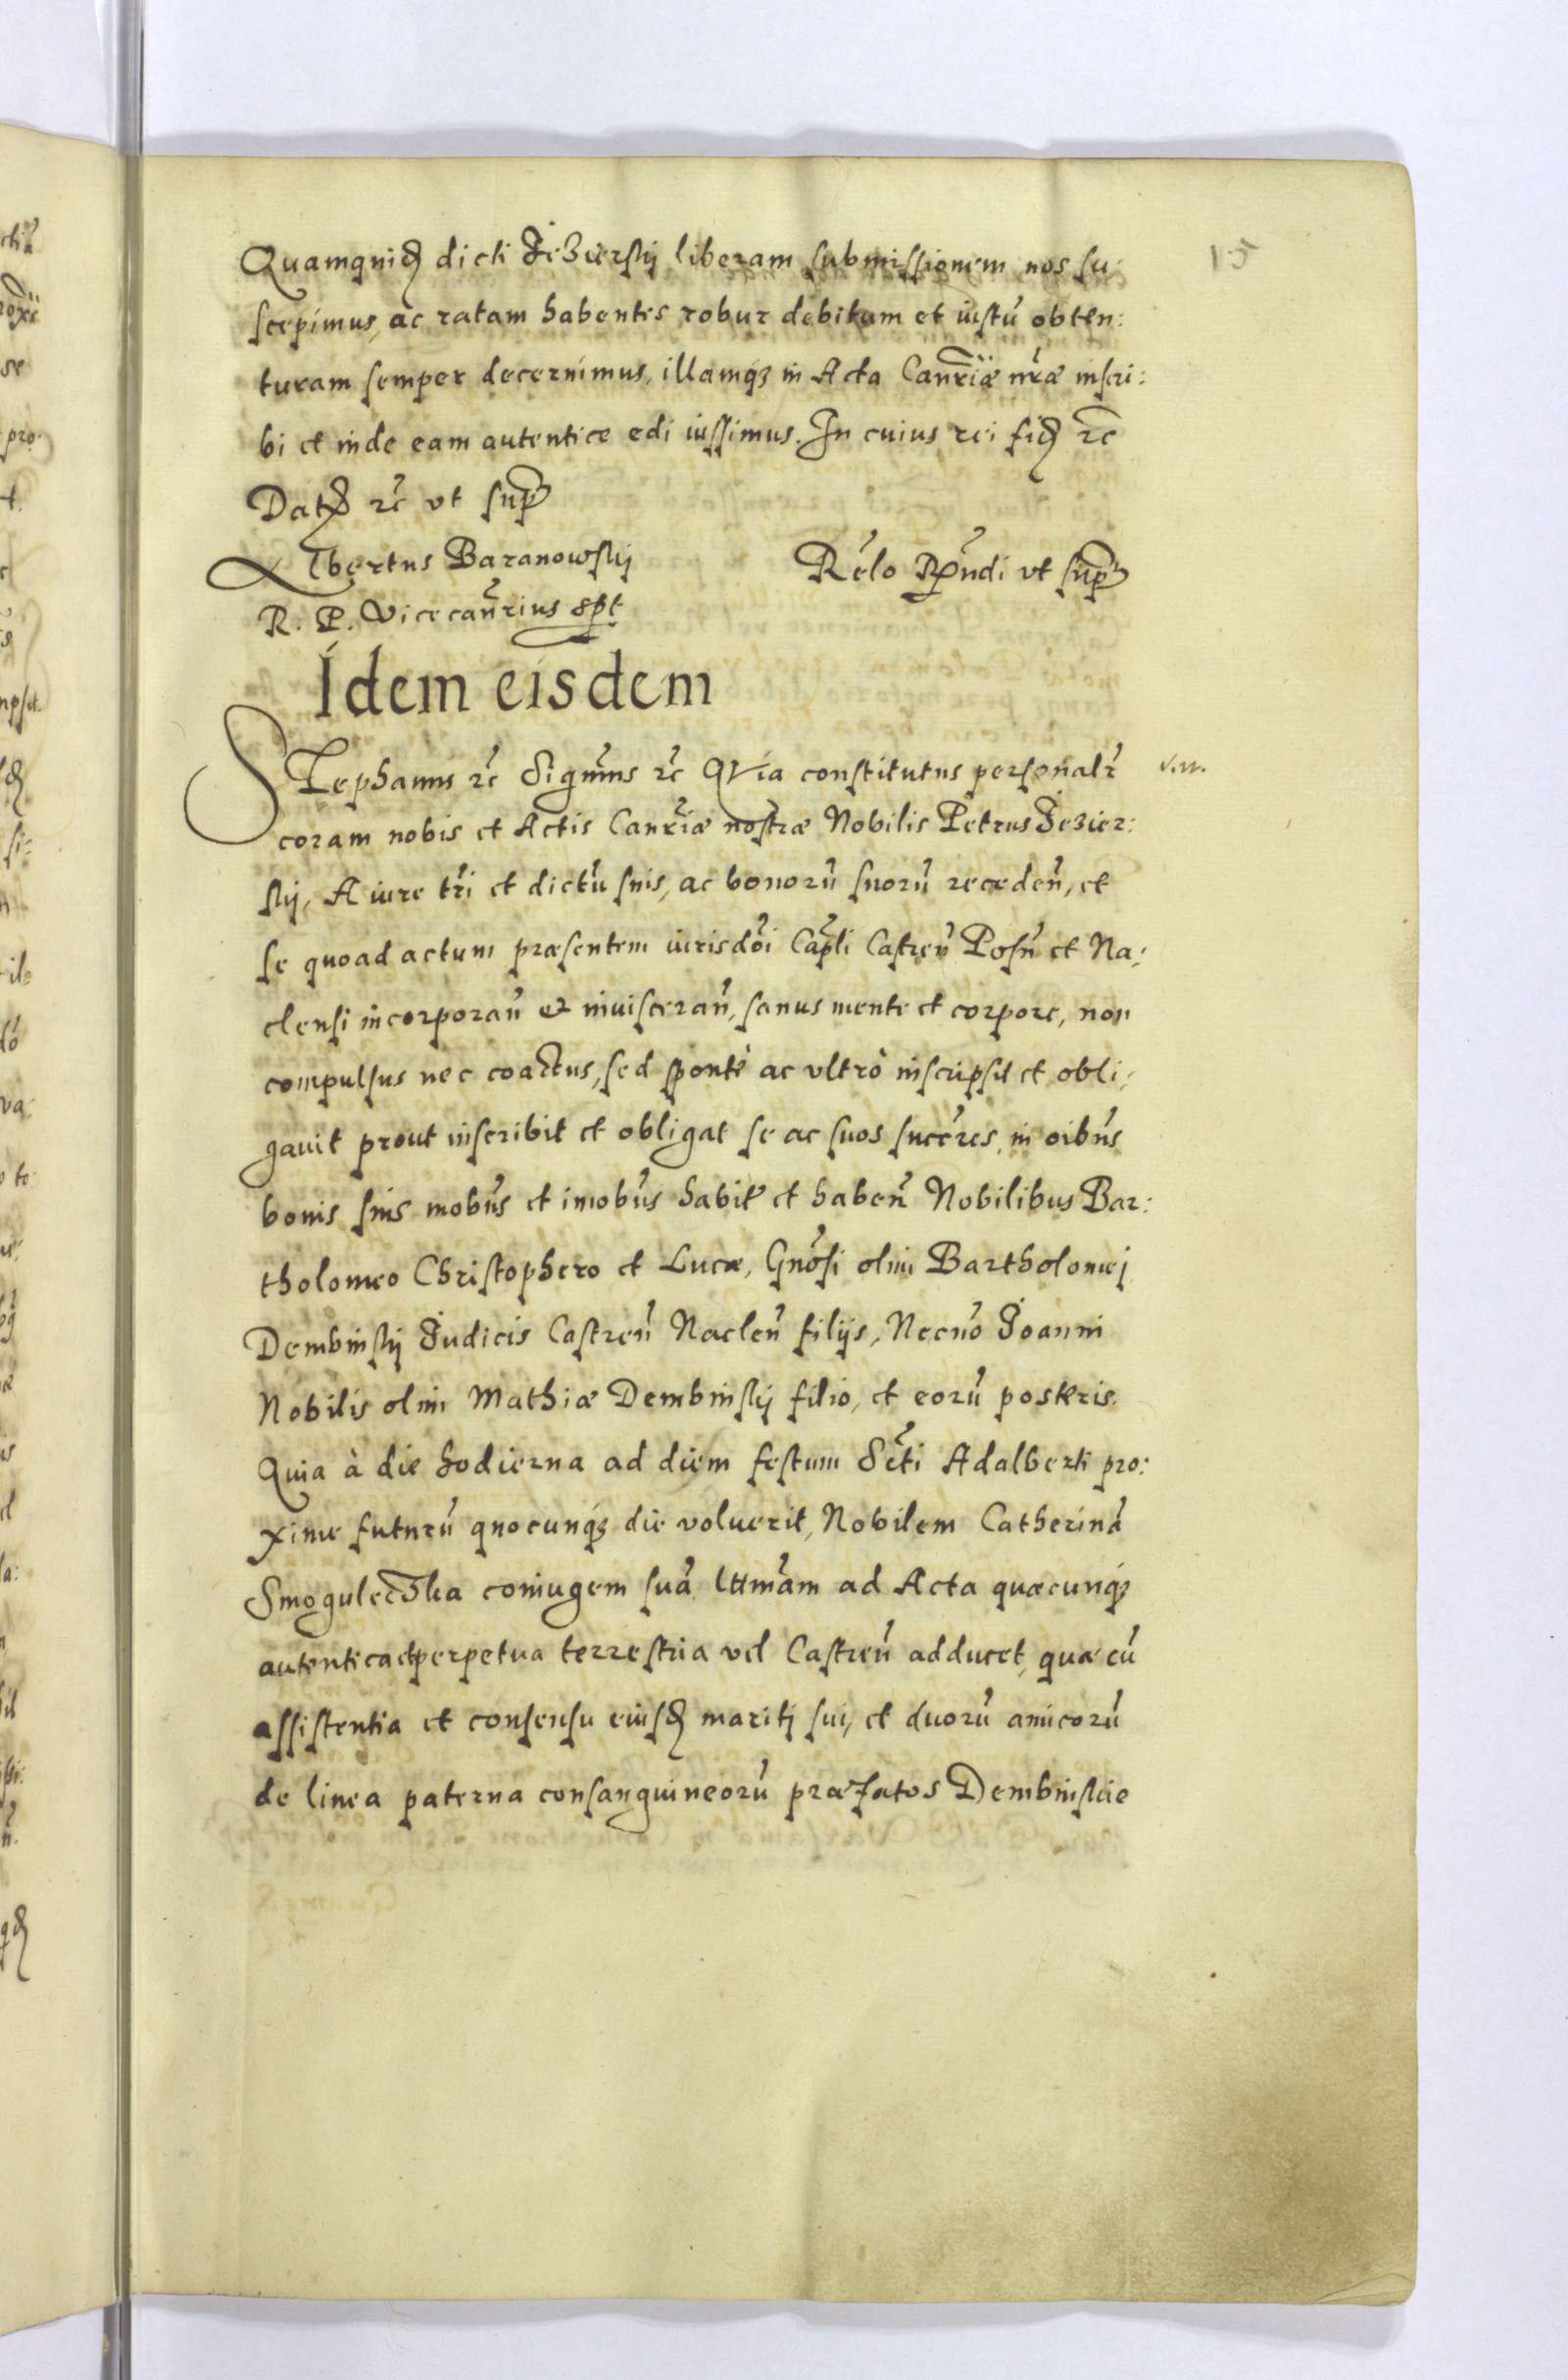 15
Quamquid dicti Jezierskij liberam submissionem nos su
scepimus, ac ratam habentes robur debitum et iustũ obten:
turam semper decernimus, illamq3 in Acta Canr̃iæ nr̃æ inscri:
bi et inde eam autentice edi iussimus. In cuius rei fid rc̃
Dat rc̃ vt sup
Albertus Baranowskij
R. P. Vicecañrius sspt
Rẽlo Rp̃ndi vt sup
Idem eisdem
STephanus rc̃ Significamus rc̃ QVia constitutus personalr̃
v.w.
coram nobis et Actis Canr̃iæ nostræ Nobilis Petrus Jezier:
skij, A iure tr̃i et dictũ suis, ac bonorũ suorũ recedeñ, et
se quoad actum præsentem iurisdõi Cap̃li Castreñ Posñ et Na:
clensi incorporañ et inuisceran̄, sanus mente et corpore, non
compulsus nec coactus, sed spontè ac vltrò inscripsit et obli:
gauit prout inscribit et obligat se ac suos succr̃es, in oib̃us
bonis suis mob̃us et imob̃us habit̃ et habeñ Nobilibus Bar:
tholomeo Christophero et Lucæ, Gnõsi olim Bartholomej
Dembinskij Judicis Castreñ Nacleñ filijs, Necnõ Joanni
Nobilis olim Mathiæ Dembinskij filio, et eorũ posteris.
Quia à die hodierna ad diem festum Sc̃ti Adalberti pro:
xime futurũ quocunq3 die voluerit, Nobilem Catherinã
Smogulecõka coniugem suã lttm̃am ad Acta quæcunq3
autentica et perpetua terrestria vel Castreñ adducet, quæ cũ
assistentia et consensu eiusd maritj sui, et duorũ amicorũ
de linea paterna consanguineorũ præfatos Dembinskie